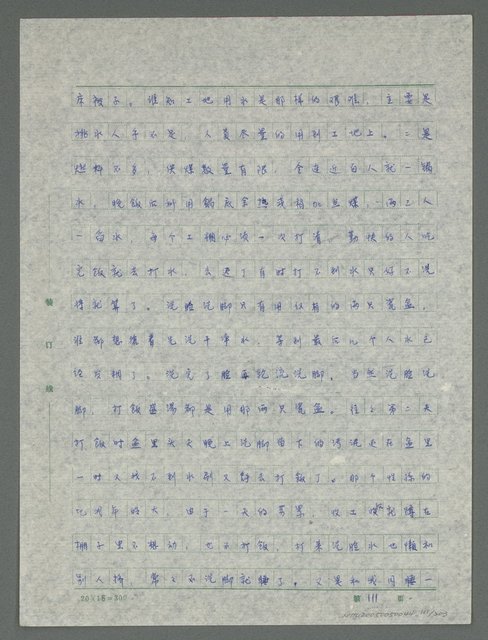 床被子。谁知工地用水是那样的艰难，主要是
挑水人手不足，人員尽量的用到工地上。二是
燃料不多，供煤数量有限，全连近百人就一锅
水，晚饭后都用锅底余热或稍加点煤，两三人
一舀水，每个工棚必须一次打着，勤快的人吃
完饭就去打水，去迟了有时打不到水只好不洗
得就算了。洗脸洗脚只有用仅有的两只瓷盆，
谁都想搶着先洗干净水，等到最后几个人水已
经发糊了。洗完了脸再轮流洗脚，当然洗脸洗
脚，打饭盛湯都是用那两只瓷盆。往往第二天
打饭时盆里头天晚上洗脚留下的污泥还在盆里
一时又找不到水刷又得去打饭了。那个性徐的
比我年岁大，由于一天的劳累，收工後就蹲在
棚子里不想动，也不打饭，打来洗脸水也懒和
别人搶，常常不洗脚就睡了。又是和我同睡一
装
订
线
20×15=300
第 111 页